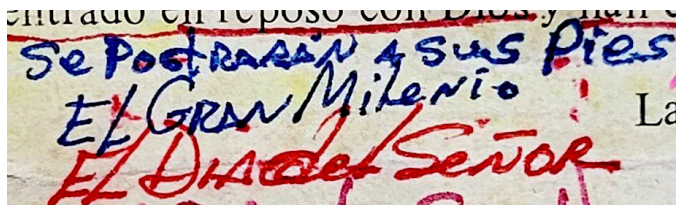 entrado en reposo con Dios y han
Se PostRARÁN A sus Pies
EL GRAN Milenio
La
EL DIA del SEÑOR